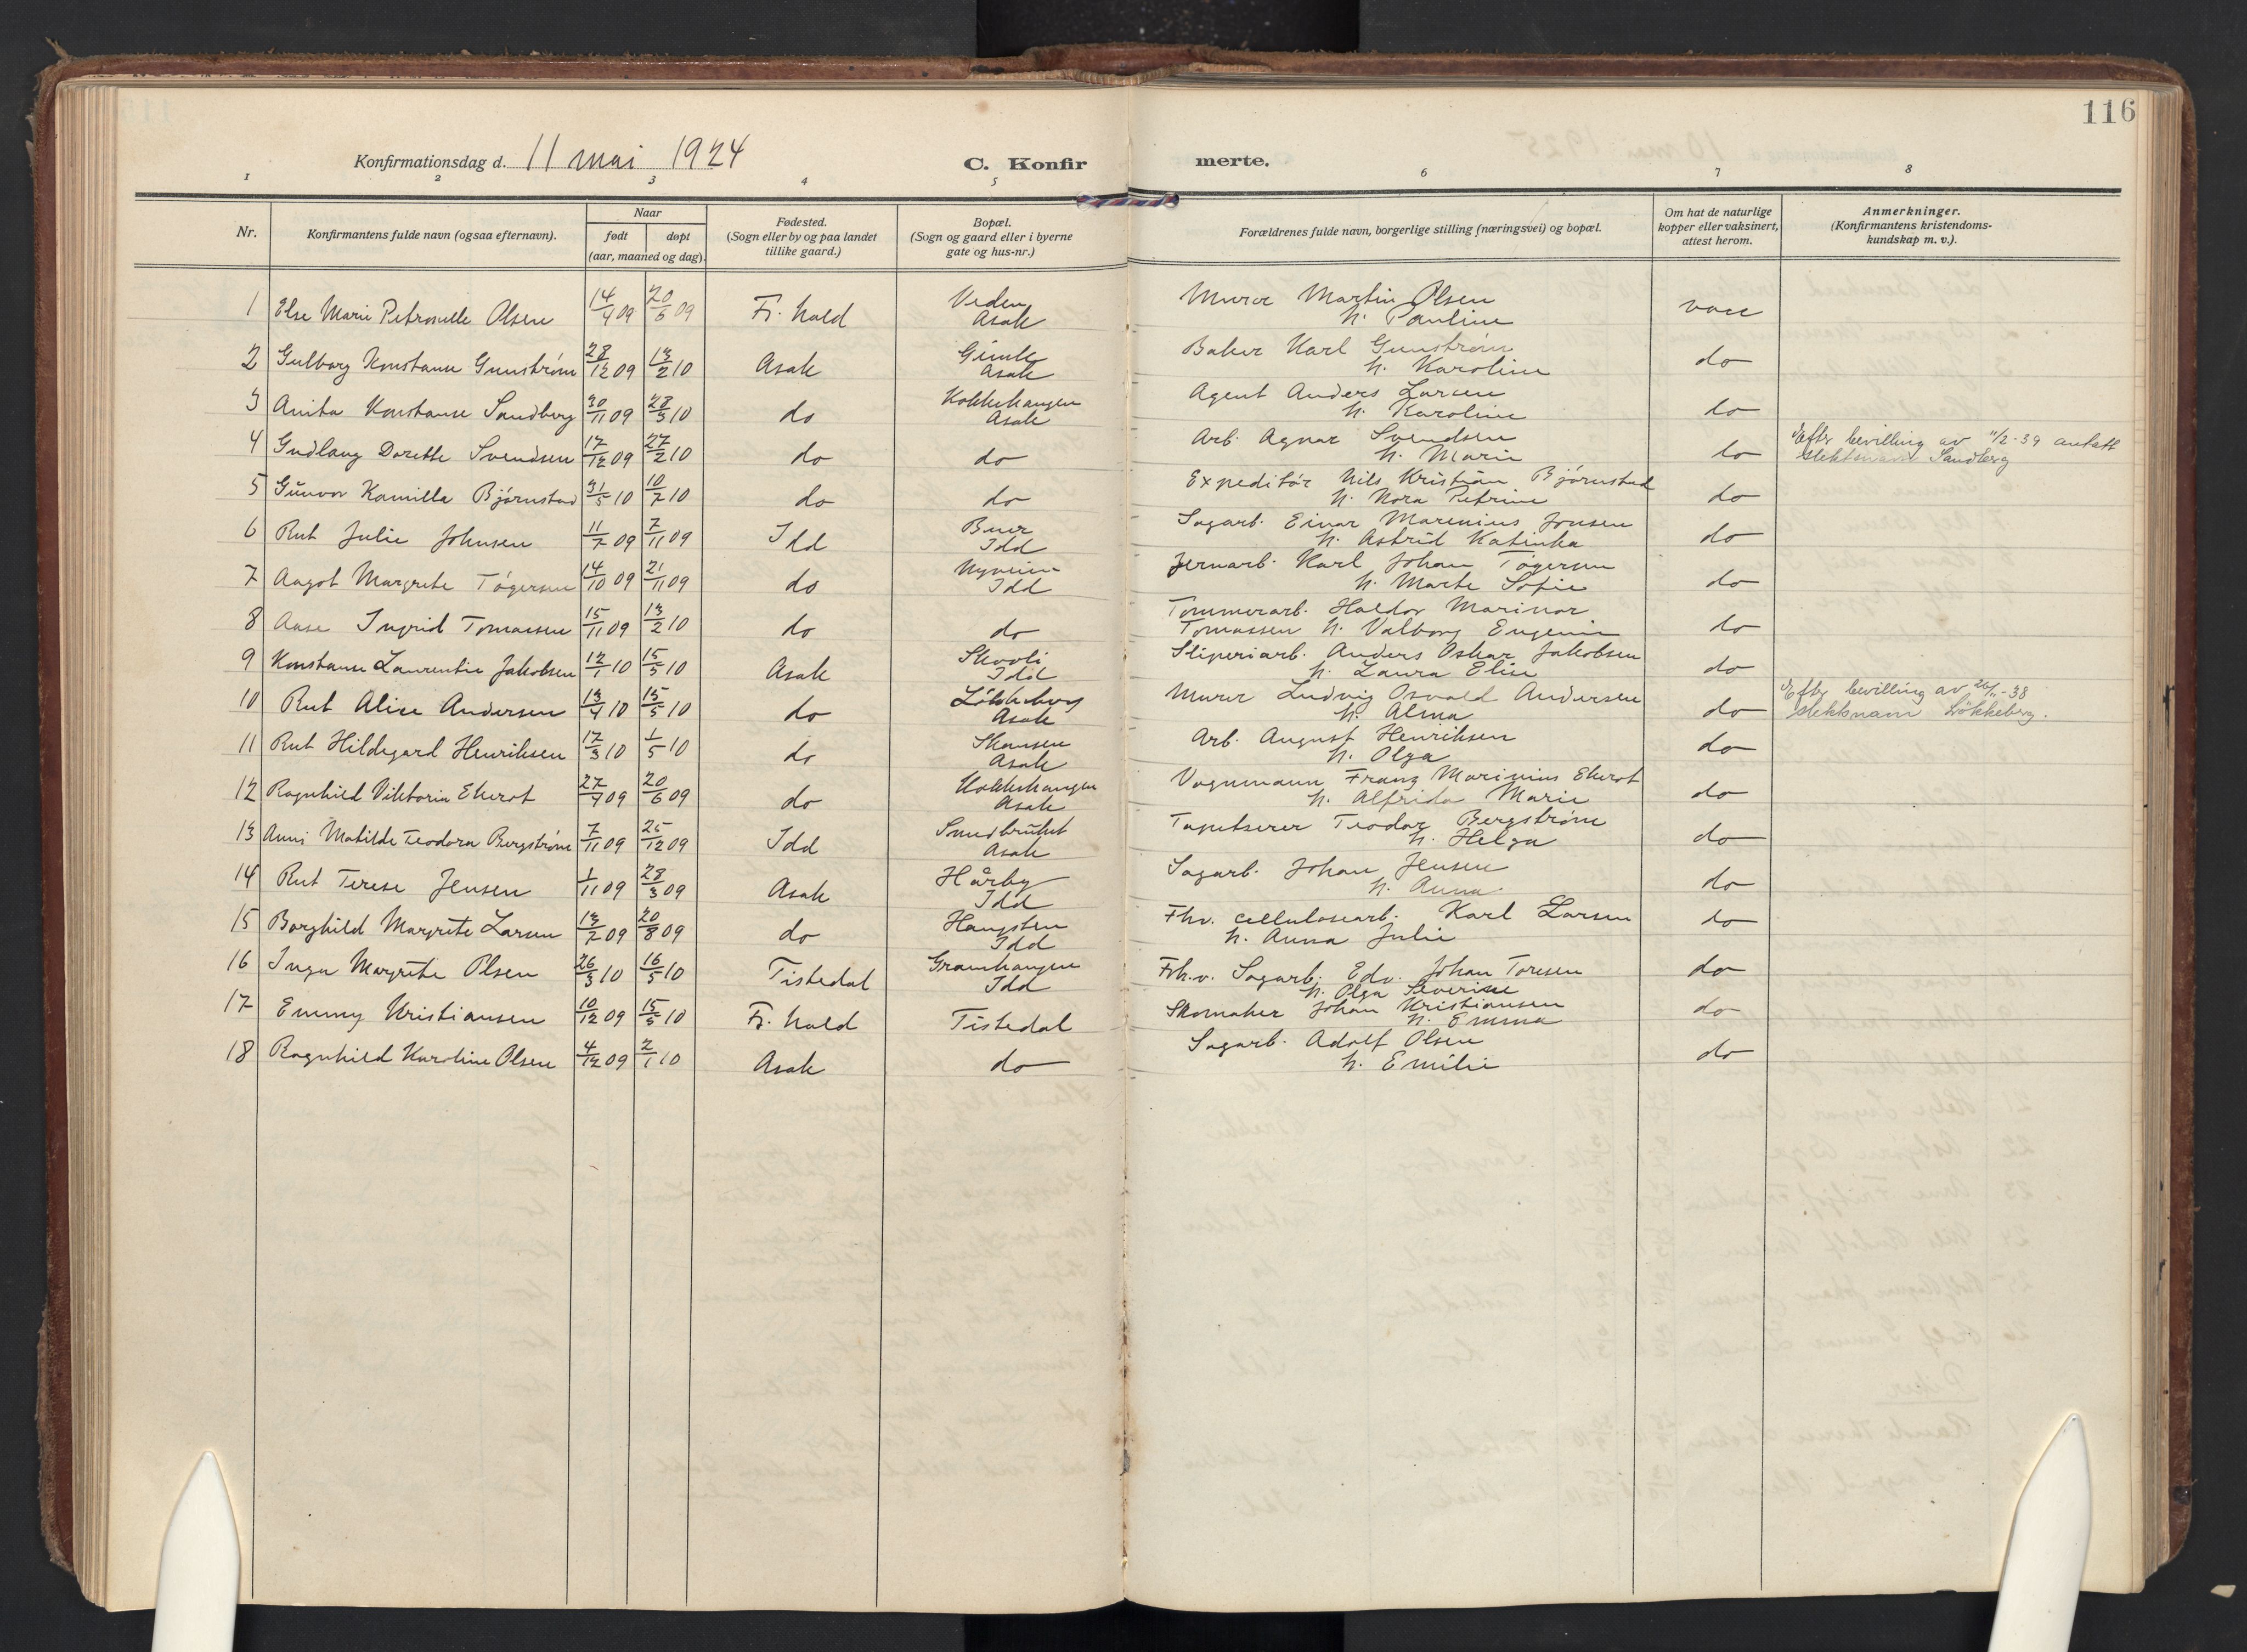 116
Konfirmationsdag d. 11 mai 1924
C. Konfir
merte.
1 2 3 4 5 6 7 8
Nr.
Konfirmantens fulde navn (ogsaa efternavn).
Naar
født døpt
(aar, maaned og dag).
Fødested.
(Sogn eller by og paa landet
tillike gaard.)
Bopæl.
(Sogn og gaard eller i byerne
gate og hus-nr.)
Forældrenes fulde navn, borgerlige stilling (næringsvei) og bopæl.
Om hat de naturlige
kopper eller vaksinert,
attest herom.
Anmerkninger.
(Konfirmantens kristendoms-
kundskap m. v.).
1 Else Marie Petronelle Olsen 14/4 09 20/6 09 Fr. hald Veden Asak Murer Martin Olsen h. Pauline vacc
2 Gulborg Konstanse Gunstrøm 28/12 09 13/2 10 Asak Gimle Asak Baker Karl Gunstrøm h. Karoline do
3 Anita Konstanse Sandberg 30/11 09 28/3 10 do Kokkehaugen Asak Agent Anders Larsen h. Karoline do
4 Gudlaug Dorette Svendsen 17/12 09 27/2 10 do do Arb. Agnar Svendsen h. Marie do Efter bevilling av 11/2-39 antatt slektsnavn Sandberg
5 Gunvor Kamilla Bjørnstad 31/5 10 10/7 10 do do Expeditør Nils Kristian Bjørnstad h. Nora Petrine do
6 Rut Julie Johnsen 11/7 09 7/11 09 Idd Buer Idd Sagarb. Einar Marenius Jonsen h. Astrid Katinka do
7 Aagot Margrete Tøgersen 14/10 09 21/11 09 do Nyheim Idd Jernarb. Karl Johan Tøgersen h. Marte Sofie do
8 Aase Ingrid Tomassen 15/11 09 13/2 10 do do Tommerarb. Haldor Marinar Tomassen h. Valborg Eugenie do
9 Konstanse Laurentie Jakobsen 12/1 10 15/5 10 Asak Skooli Idd Sliperiarb. Anders Oskar Jakobsen h. Laura Elise do
10 Rut Alice Andersen 13/4 10 15/5 10 do Løkkeberg Asak Murer Ludvig Osvald Andersen h. Alma do Efter bevilling av 26/11-38 slektsnavn Løkkeberg.
11 Rut Hildegard Henriksen 17/3 10 1/5 10 do Skansen Asak Arb. August Henriksen h. Olga do
12 Ragnhild Viktoria Ekerot 27/4 09 20/6 09 do Kokkehaugen Asak Vognmann Franz Marinius Ekerot h. Alfrida Marie do
13 Anni Matilde Teodora Bergstrøm 7/11 09 25/12 09 Idd Sundbrudet Asak Tapetserer Teodor Bergstrøm h. Helga do
14 Rut Terese Jensen 1/11 09 28/3 09 Asak Hårby Idd Sagarb. Johan Jensen h. Anna do
15 Borghild Margrete Larsen 13/7 09 20/8 09 do Haugsten Idd Fhv. cellulosearb. Karl Larsen h. Anna Julie do
16 Inga Margrete Olsen 26/3 10 16/5 10 Tistedal Granhaugen Idd Fh.v. Sagarb. Edv. Johan Toresen h. Olga Severine do
17 Emmy Kristiansen 10/12 09 15/5 10 Fr. hald Tistedal Skomaker Johan Kristiansen h. Emma do
18 Ragnhild Karoline Olsen 4/12 09 2/1 10 Asak do Sagarb. Adolf Olsen h. Emilie do